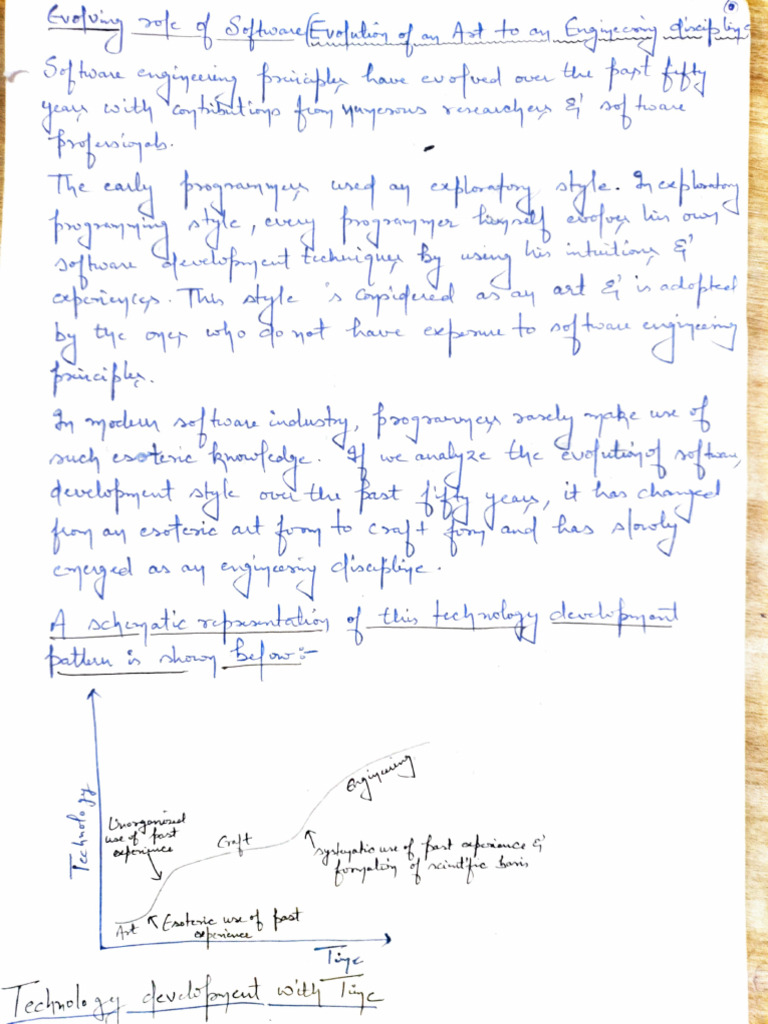 Evolving role of Software (Evolution of an Art to an Engineering discipline
Software engineering principles have evolved over the past fifty
years with contributions from numerous researchers & software
professionals.
The early programmers used an exploratory style. In exploratory
programming style, every programmer himself evolves his own
software development techniques by using his intuitions &
experiences. This style is considered as an art & is adopted
by the ones who do not have exposure to software engineering
principles.
In modern software industry, programmers rarely make use of
such esoteric knowledge. If we analyze the evolution of software
development style over the past fifty years, it has changed
from an esoteric art form to craft form and has slowly
emerged as an engineering discipline.
A schematic representation of this technology development
pattern is shown below:-
Technology
Unorganized
use of past
experience
Craft
Engineering
Systematic use of past experience &
formation of scientific basis
Art
Esoteric use of past
experience
Time
Technology development with Time